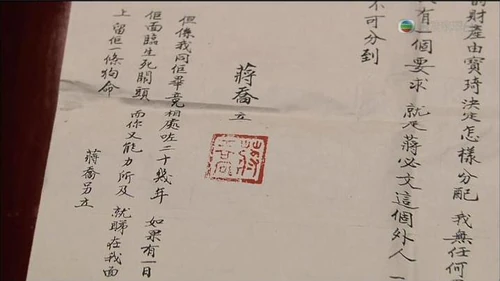 的財產由寶琦決定怎樣分配 我無任何
有一個要求 就是蔣必文這個外人 一
不可分到
蔣喬立
蔣喬
但係我同佢畢竟相處咗二十幾年 如果有一日
佢面臨生死關頭 而你又能力所及 就睇在我面
上 留佢一條狗命
蔣喬另立